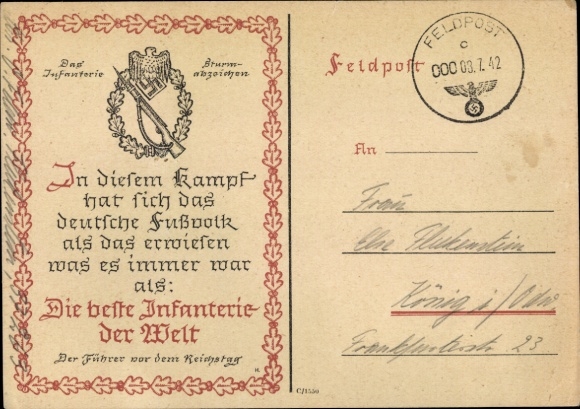 Das
Infanterie
Sturm-
abzeichen
In diesem Kampf
hat sich das
deutsche Fußvolk
als das erwiesen
was es immer war
als:
Die beste Infanterie
der Welt
Der Führer vor dem Reichstag
Feldpost
FELDPOST
c
000 09.7.42
An
Frau
Else Fleckenstein
König i/Odw
Frankfurterstr. 23.
C/1550